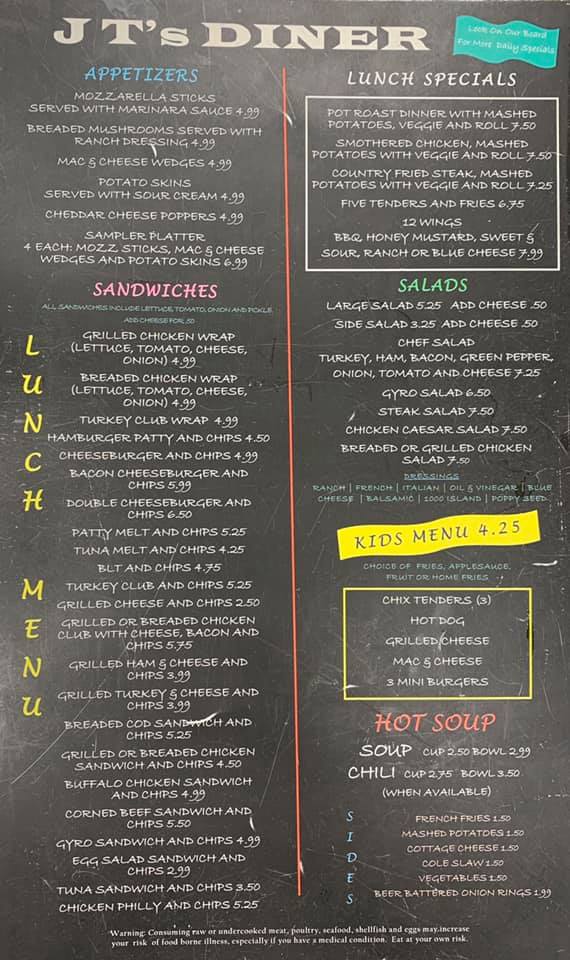 JT's DINER
Look On Our Board
For More Daily Specials
APPETIZERS
MOZZARELLA STICKS
SERVED WITH MARINARA SAUCE 4.99
BREADED MUSHROOMS SERVED WITH
RANCH DRESSING 4.99
MAC & CHEESE WEDGES 4.99
POTATO SKINS
SERVED WITH SOUR CREAM 4.99
CHEDDAR CHEESE POPPERS 4.99
SAMPLER PLATTER
4 EACH: MOZZ STICKS, MAC & CHEESE
WEDGES AND POTATO SKINS 6.99
SANDWICHES
ALL SANDWICHES INCLUDE LETTUCE, TOMATO, ONION AND PICKLE
ADD CHEESE FOR .50
LUNCH MENU
GRILLED CHICKEN WRAP
(LETTUCE, TOMATO, CHEESE,
ONION) 4.99
BREADED CHICKEN WRAP
(LETTUCE, TOMATO, CHEESE,
ONION) 4.99
TURKEY CLUB WRAP 4.99
HAMBURGER PATTY AND CHIPS 4.50
CHEESEBURGER AND CHIPS 4.99
BACON CHEESEBURGER AND
CHIPS 5.99
DOUBLE CHEESEBURGER AND
CHIPS 6.50
PATTY MELT AND CHIPS 5.25
TUNA MELT AND CHIPS 4.25
BLT AND CHIPS 4.75
TURKEY CLUB AND CHIPS 5.25
GRILLED CHEESE AND CHIPS 2.50
GRILLED OR BREADED CHICKEN
CLUB WITH CHEESE, BACON AND
CHIPS 5.75
GRILLED HAM & CHEESE AND
CHIPS 3.99
GRILLED TURKEY & CHEESE AND
CHIPS 3.99
BREADED COD SANDWICH AND
CHIPS 5.25
GRILLED OR BREADED CHICKEN
SANDWICH AND CHIPS 4.50
BUFFALO CHICKEN SANDWICH
AND CHIPS 4.99
CORNED BEEF SANDWICH AND
CHIPS 5.50
GYRO SANDWICH AND CHIPS 4.99
EGG SALAD SANDWICH AND
CHIPS 2.99
TUNA SANDWICH AND CHIPS 3.50
CHICKEN PHILLY AND CHIPS 5.25
LUNCH SPECIALS
POT ROAST DINNER WITH MASHED
POTATOES, VEGGIE AND ROLL 7.50
SMOTHERED CHICKEN, MASHED
POTATOES WITH VEGGIE AND ROLL 7.50
COUNTRY FRIED STEAK, MASHED
POTATOES WITH VEGGIE AND ROLL 7.25
FIVE TENDERS AND FRIES 6.75
12 WINGS
BBQ, HONEY MUSTARD, SWEET &
SOUR, RANCH OR BLUE CHEESE 7.99
SALADS
LARGE SALAD 5.25 ADD CHEESE .50
SIDE SALAD 3.25 ADD CHEESE .50
CHEF SALAD
TURKEY, HAM, BACON, GREEN PEPPER,
ONION, TOMATO AND CHEESE 7.25
GYRO SALAD 6.50
STEAK SALAD 7.50
CHICKEN CAESAR SALAD 7.50
BREADED OR GRILLED CHICKEN
SALAD 7.50
DRESSINGS
RANCH | FRENCH | ITALIAN | OIL & VINEGAR | BLUE
CHEESE | BALSAMIC | 1000 ISLAND | POPPY SEED
KIDS MENU 4.25
CHOICE OF FRIES, APPLESAUCE,
FRUIT OR HOME FRIES
CHIX TENDERS (3)
HOT DOG
GRILLED CHEESE
MAC & CHEESE
3 MINI BURGERS
HOT SOUP
SOUP CUP 2.50 BOWL 2.99
CHILI CUP 2.75 BOWL 3.50
(WHEN AVAILABLE)
SIDES
FRENCH FRIES 1.50
MASHED POTATOES 1.50
COTTAGE CHEESE 1.50
COLE SLAW 1.50
VEGETABLES 1.50
BEER BATTERED ONION RINGS 1.99
*Warning: Consuming raw or undercooked meat, poultry, seafood, shellfish and eggs may increase
your risk of food borne illness, especially if you have a medical condition. Eat at your own risk.